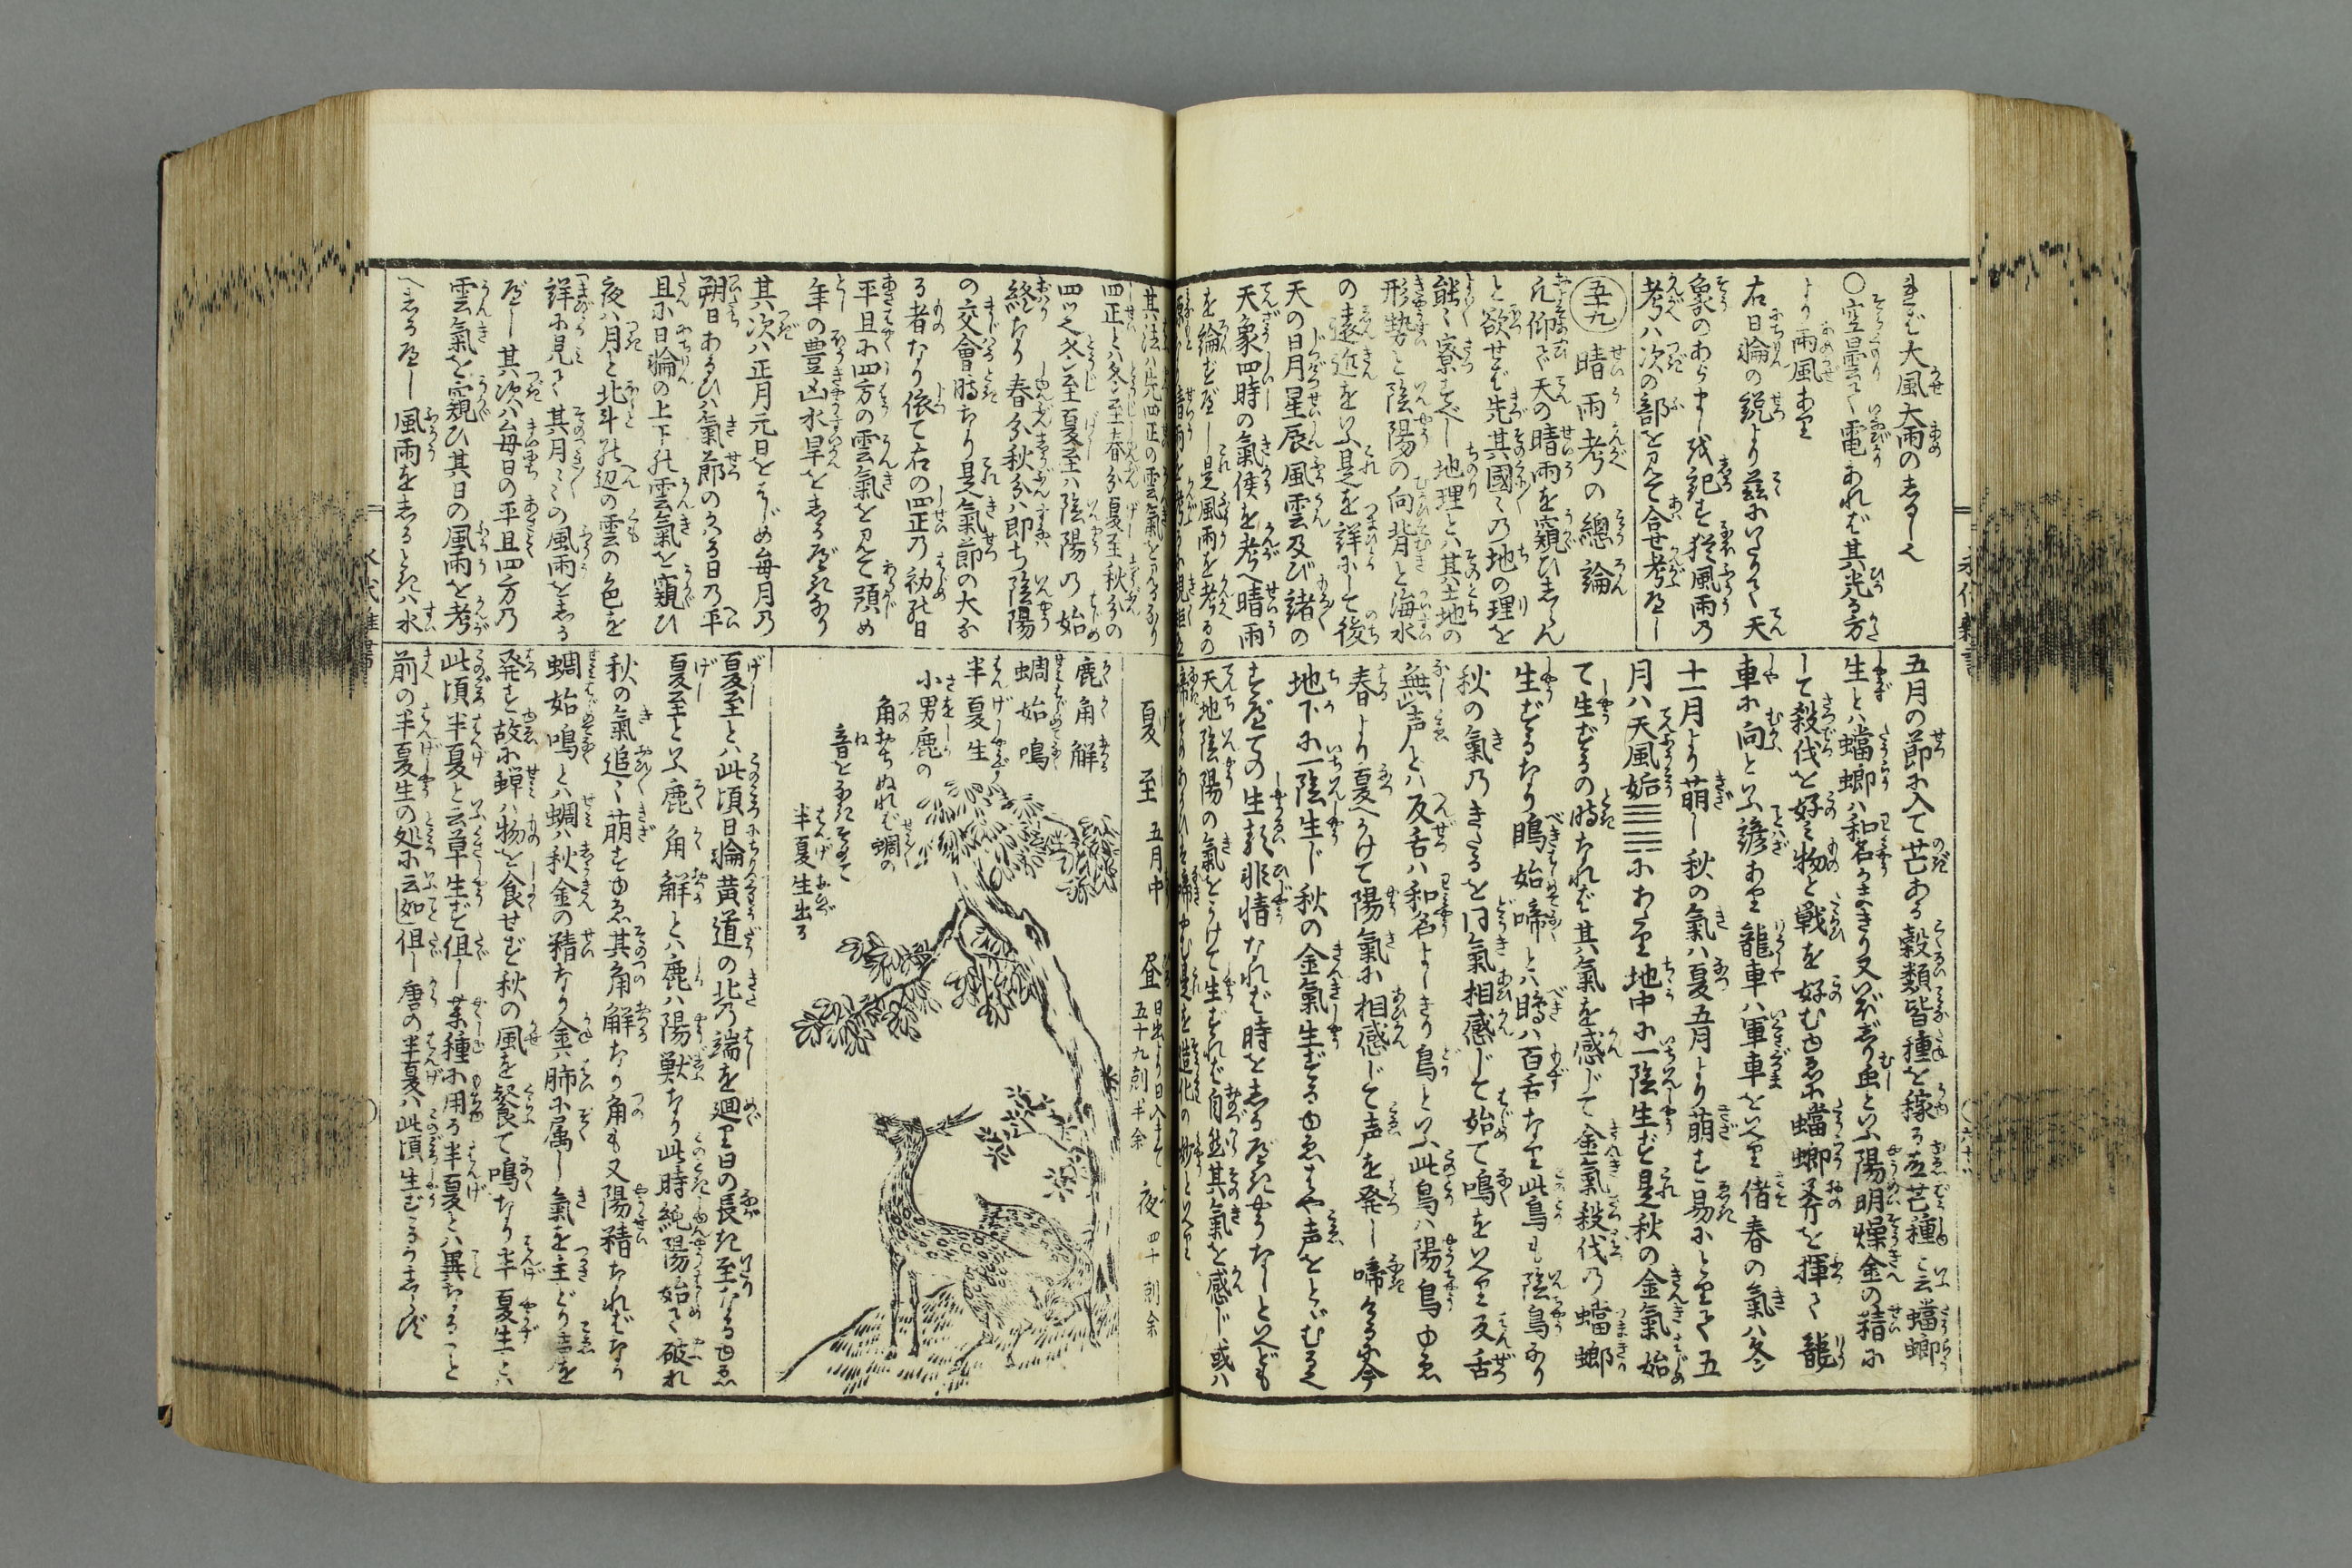 れば大風大雨のしるし也
〇空曇て電あれば其光る方
より雨風あり
右日輪の説より茲にいたりて天
象のあらましを記す猶風雨の
考ハ次の部を見て合せ考べし
五十九 晴雨考の總論
凡仰で天の晴雨を窺ひしらん
と欲せば先其國々の地の理を
能々察すべし地理とハ其土地の
形勢と陰陽の向背と海水
の遠近をいふ是を詳にして後
天の日月星辰風雲及び諸の
天象四時の氣候を考へ晴雨
を綸ずべし是風雨を考るの
五月の節に入て芒ある穀類皆種を稼る故芒種と云蟷螂
生とハ蟷螂ハ和名かまきり又いぼじり虫といふ陽明燥金の精に
して殺伐を好み物と戰を好むゆゑに蟷螂斧を揮て龍
車に向といふ諺あり龍車ハ軍車をいへり偖春の氣ハ冬
十一月より萌し秋の氣ハ夏五月より萠す易にとりて五
月ハ天風姤☰☴にあたり地中に一陰生ず是秋の金氣始
て生ずるの時なれば其氣を感じて金氣殺伐の蟷螂
生ずるなり鵙始啼とハ鵙ハ百舌なり此鳥も陰鳥なり
秋の氣のきたるを同氣相感じて始て鳴をいへり反舌
無声とハ反舌ハ和名よしきり鳥といふ此鳥ハ陽鳥ゆゑ
春より夏へかけて陽氣に相感じて声を発し啼くるに今
地下に一陰生じ秋の金氣生ずるゆゑはや声をとゞむる也
すべての生類非情なれば時をしるべきやうなしといへども
天地陰陽の氣をうけて生ずれば自然其氣を感じ或ハ
啼そめあるひハ啼やむ是を造化の妙といへり
其法ハ先四正の雲氣を見るなり
四正とハ冬至春分夏至秋分の
四ツ也冬至夏至ハ陰陽の始
終なり春分秋分ハ即ち陰陽
の交會時なり是氣節の大な
る者なり依て右の四正の初の日
平且に四方の雲氣を見て預め
年の豊凶水旱をしるべきなり
其次ハ正月元日をはじめ毎月の
朔日あるひハ氣節のかる日の平
且に日輪の上下の雲氣を窺ひ
夜ハ月と北斗の辺の雲の色を
詳に見て其月々の風雨をしる
べし其次ハ毎日の平且四方の
雲氣を窺ひ其日の風雨を考
へしるべし風雨をしるときハ水
夏至 五月中 昼 日出より日入まで五十九刻半余 夜 四十刻余
鹿角解
蜩始鳴
半夏生
小男鹿の
角おちぬれば蜩の
音をなきそめて
半夏生出る
夏至とハ此頃日輪黄道の北の端を廻り日の長き至なるゆゑ
夏至といふ鹿角解とハ鹿ハ陽獣なり此時純陽始て破れ
秋の氣追々萌すゆゑ其角解なり角も又陽精なればなり
蜩始鳴とハ蜩ハ秋金の精なり金ハ肺に属し氣を主どり声を
発す故に蝉ハ物を食せず秋の風を餐て鳴なり半夏生とハ
此頃半夏と云草生ず但し茱種に用る半夏とハ異なること
前の半夏生の処に云如但し唐の半夏ハ此頃生ずるかしらず